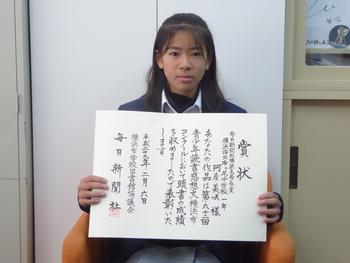 賞状
毎日新聞社横浜支局長賞
中学校 一年
様
あなたの作品は第六十一回
青少年読書感想文横浜市
コンクールにおいて頭書の成績
を収めましたので表彰いた
します
平成二十八年二月六日
横浜市学校図書館協議会
毎日新聞社